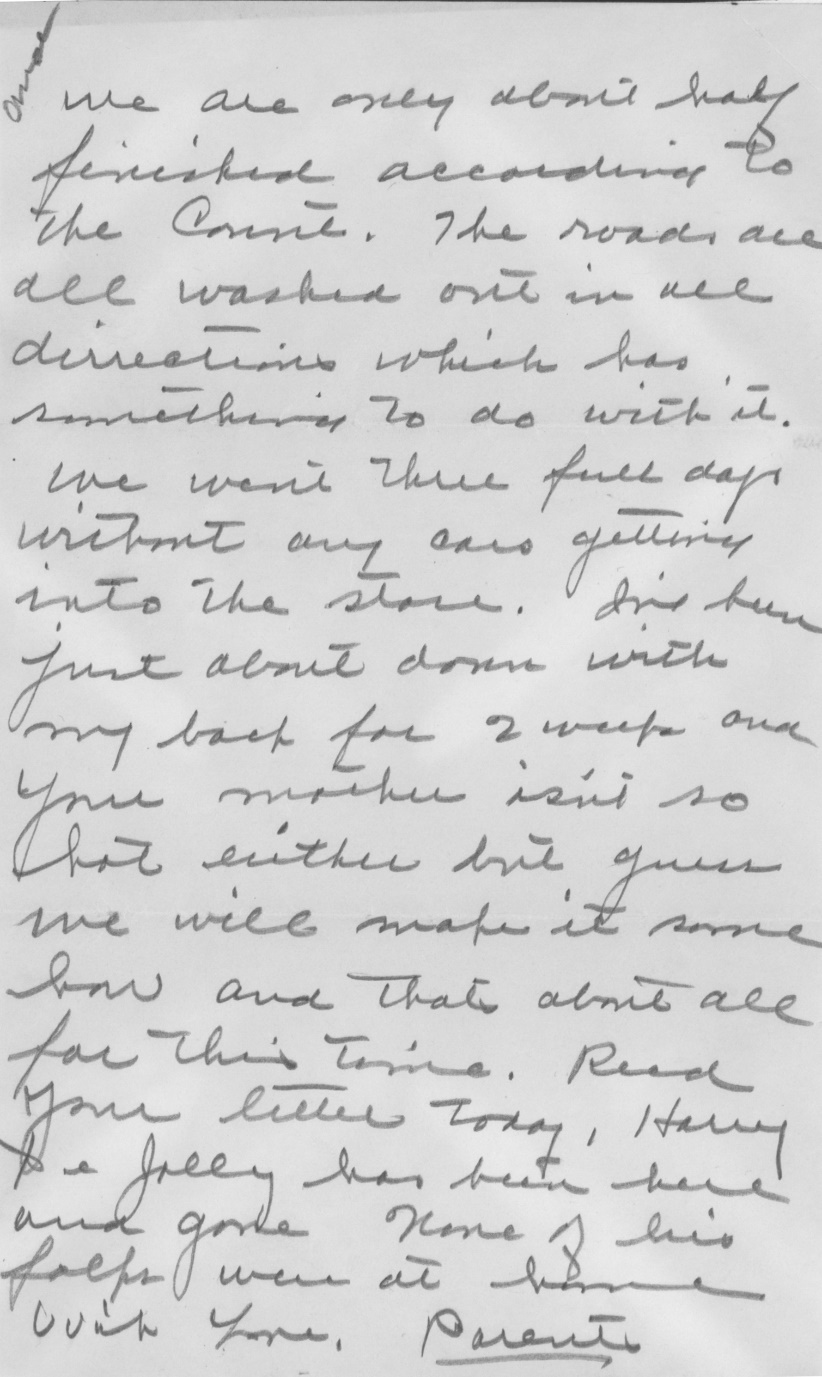 we are only about half
finished according to
the Count. The roads are
all washed out in all
dirrections which has
something to do with it.
We went three full days
without any cars getting
into the store. I've been
just about down with
my back for 2 weeks and
your mother isn't so
hot either but guess
we will make it some
how and thats about all
for this time. Recd
your letter today, Harry
De Jolly has been here
and gone None of his
folks were at home
With Love. Parents